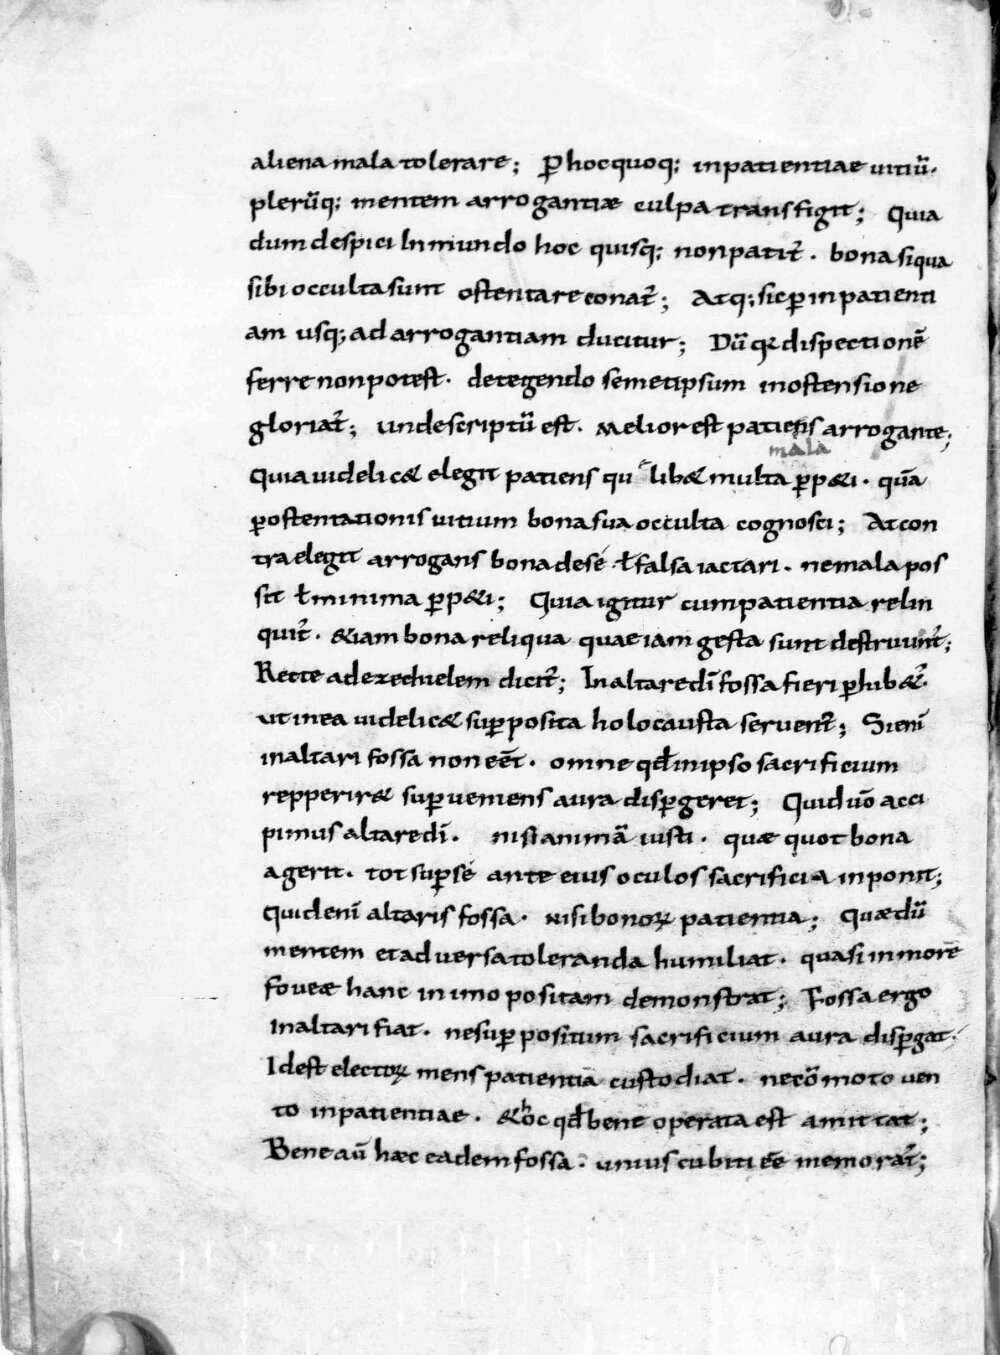 aliena mala tolerare; P̄ hoc quoq; inpatientiae uitiū.
plerūq; mentem arrogantiæ culpa transfigit; Quia
dum despici In mundo hoc quisq; non patit̄. bona si qua
sibi occulta sunt ostentare conat̄; Atq; sic ꝑ inpatienti
am usq; ad arrogantiam ducitur; Dū qꝛ dispectionē
ferre non potest. detegendo semetipsum in ostensione
gloriat̄; unde scriptū est. Melior est patiens arrogante;
mala
Quia uidelic& elegit patiens qu lib& multa ꝑp&i. quā
ꝑ ostentationis uitium bona sua occulta cognosci; At con
tra elegit arrogans bona de sé ł falsa iactari. ne mala pos
sit ł minima ꝑp&i; Quia igitur cum patientia relin
quit̄. &iam bona reliqua quae iam gesta sunt destruunt̄;
Recte ad ezechielem dicit̄; In altare dī fossa fieri ꝑhib&̄.
ut in ea uidelic& suꝑposita holocausta seruent̄; Si enī
in altari fossa non eēt. omne qđ in ipso sacrificium
repperir& suꝑueniens aura disꝑgeret; Quid uō acci
pimus altare dī. nisi animā iusti. quæ quot bona
agerit. tot suꝑ sé ante eius oculos sacrificia inponit;
Quid enī altaris fossa. nisi bonoꝝ patientia; Quæ dū
mentem et aduersa toleranda humiliat. quasi in morē
foueæ hanc in imo positam demonstrat; Fossa ergo
In altari fiat. ne suꝑpositum sacrificium aura disꝑgat.
Id est electoꝝ mens patientiā custodiat. ne cōmoto uen
to inpatientiae. &hoc qđ bene operata est amittat;
Bene aū hæc eadem fossa. unius cubiti eē memorat̄;